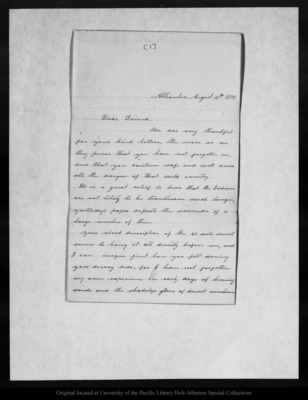 (1)
Alhambra August 10th
Dear Friend.
We are very thankful
for your kind letters, the more so as
they prove that you have not forgotten us,
and that you continue safe and well amid
all the dangers of that wild country.
It is a great relief to hear that the Indians
are not likely to be troublesome much longer,
yesterdays paper reports the surrender of a
large number of them.
Your vivid description of the 90 mile desert
seems to bring it all directly before us, and
I can imagine just how you felt during
your dreary ride, for I have not forgotten
my own experience in early days of burning
sands and the shadeless glare of desert sunshine
Original located at University of the Pacific Library Holt-Atherton Special Collections